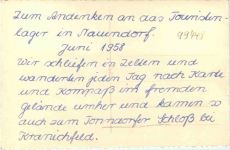 Zum Andenken an das Touristen-
lager in Nauendorf.
Juni 1958
Wir schliefen in Zelten und
wanderten jeden Tag nach Karte
und Kompaß im fremden
gelände umher und kamen so
auch zum Tonndorfer Schloß bei
Kranichfeld.